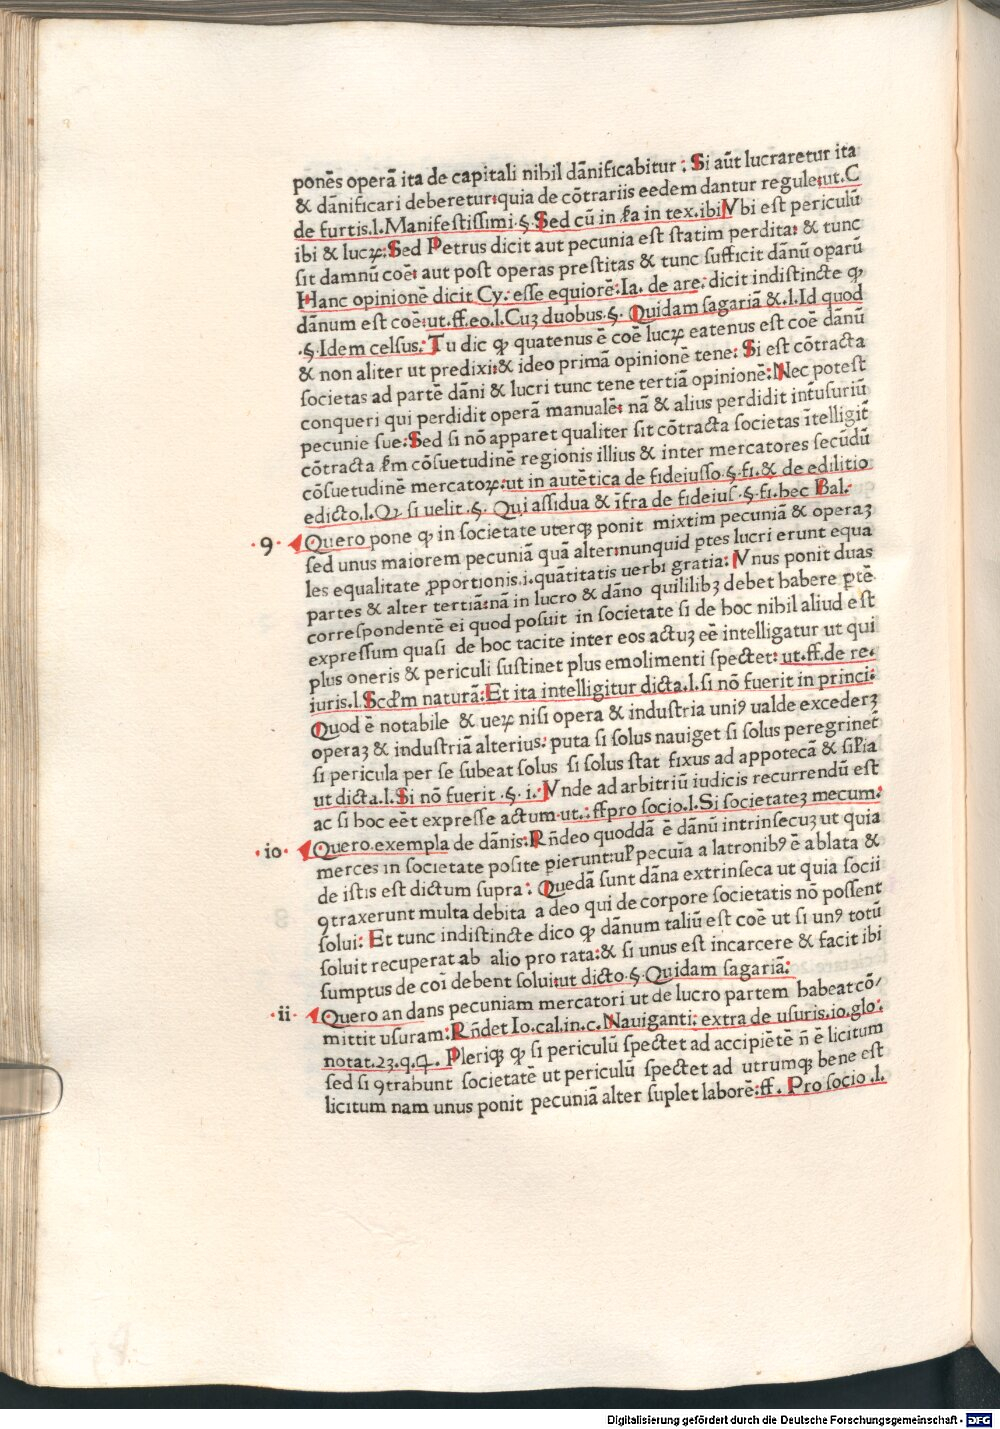 ponẽs operã ita de capitali nihil dãnificabitur : Si aũt lucraretur ita
& dãnificari deberetur:quia de cõtrariis eedem dantur regule:ut.C
de furtis.l.Manifestissimi.§.Sed cũ in ꝼa in tex.ibi Vbi est periculũ
ibi & lucꝝ:Sed Petrus dicit aut pecunia est statim perdita: & tunc
sit damnũ coẽ: aut post operas prestitas & tunc sufficit dãnũ oꝑarũ
Hanc opinionẽ dicit Cy: esse equiorẽ:Ia. de are: dicit indistincte ꝙ
dãnum est coẽ:ut.ff.eo.l.Cuꝫ duobus.§. Quidam sagariã &.l.Id quod
.§.Idem celsus: Tu dic ꝙ quatenus ẽ coẽ lucꝝ eatenus est coẽ dãnũ
& non aliter ut predixi:& ideo primã opinionẽ tene: Si est cõtracta
societas ad partẽ dãni & lucri tunc tene tertiã opinionẽ:Nec potest
conqueri qui perdidit operã manualẽ: nã & alius perdidit int̃usuriũ
pecunie sue:Sed si nõ apparet qualiter sit cõtracta societas ĩtelligit̃
cõtracta ẜm cõsuetudinẽ regionis illius & inter mercatores secũdũ
cõsuetudinẽ mercatoꝝ:ut in autẽtica de fideiusso.§.fi.& de edilitio
edicto.l.Qꝫ si uelit.§. Qui assidua & ĩfra de fideius.§.fi.hec Bal.
.9. Quero pone ꝙ in societate uterqꝫ ponit mixtim pecuniã & operaꝫ
sed unus maiorem pecuniã quã alter:nunquid ꝑtes lucri erunt equa
les equalitate ꝓportionis.i.quãtitatis uerbi gratia: Vnus ponit duas
partes & alter tertiã:nã in lucro & dãno quilibꝫ debet habere ꝑtẽ
correspondentẽ ei quod posuit in societate si de hoc nihil aliud est
expressum quasi de hoc tacite inter eos actuꝫ eẽ intelligatur ut qui
plus oneris & periculi sustinet plus emolimenti spectet: ut.ff.de re.
iuris.l.Scdm naturã:Et ita intelligitur dicta.l.si nõ fuerit in princi:
Quod ẽ notabile & ueꝝ nisi opera & industria uniꝰ ualde excederꝫ
operaꝫ & industriã alterius: puta si solus nauiget si solus peregrinet̃
si pericula per se subeat solus si solus stat fixus ad appotecã & siĩlia
ut dicta.l.Si nõ fuerit.§.i.:Vnde ad arbitriũ iudicis recurrendũ est
ac si hoc eẽt expresse actum.ut.:ff pro socio.l.Si societateꝫ mecum:
.io. Quero.exempla de dãnis:Rñdeo quoddã ẽ dãnũ intrinsecuꝫ ut quia
merces in societate posite ꝑierunt:ul pecuĩa a latronibꝰ ẽ ablata &
de istis est dictum supra: Quedã sunt dãna extrinseca ut quia socii
ꝯtraxerunt multa debita a deo qui de corpore societatis nõ possent
solui: Et tunc indistincte dico ꝙ dãnum taliũ est coẽ ut si unꝰ totũ
soluit recuperat ab alio pro rata:& si unus est incarcere & facit ibi
sumptus de coĩ debent solui:ut dicto.§.Quidam sagariã:
.ii. Quero an dans pecuniam mercatori ut de lucro partem habeat cõ/
mittit usuram:Rñdet Io.cal.in.c.Nauiganti: extra de usuris.io.glo:
notat.23.q.4. Pleriqꝫ ꝙ si periculũ spectet ad accipiẽtẽ ñ ẽ licitum
sed si ꝯtrahunt societatẽ ut periculũ spectet ad utrumqꝫ bene est
licitum nam unus ponit pecuniã alter suplet laborẽ:ff. Pro socio.l.
Digitalisierung gefördert durch die Deutsche Forschungsgemeinschaft - DFG